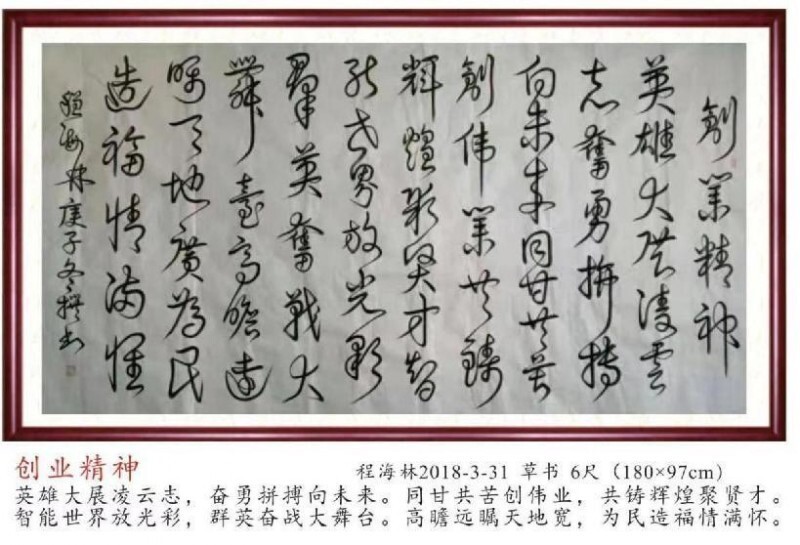 創業精神
英雄大展凌雲
志奮勇拚搏
向未来同甘共苦
創伟業共鑄
輝煌聚賢才智
能世界放光彩
羣英奮戰大
舞臺高瞻遠
瞩天地廣為民
造福情满懷
程海林庚子冬撰书
创业精神
程海林2018-3-31 草书 6尺（180×97cm）
英雄大展凌云志，奋勇拼搏向未来。同甘共苦创伟业，共铸辉煌聚贤才。
智能世界放光彩，群英奋战大舞台。高瞻远瞩天地宽，为民造福情满怀。